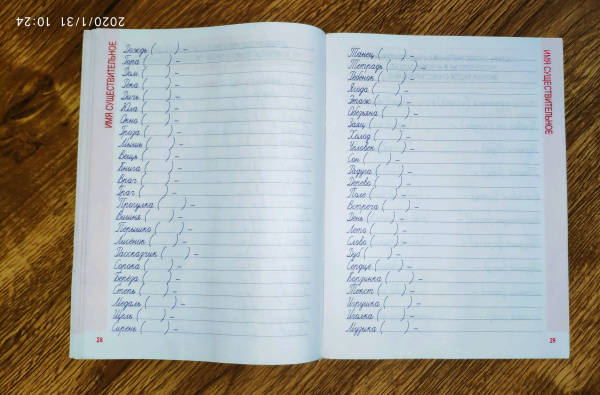 2020/1/31 10:24
ИМЯ СУЩЕСТВИТЕЛЬНОЕ
Дождь ( ) –
Гора ( ) –
Дом ( ) –
Река ( ) –
Речь ( ) –
Юла ( ) –
Окно ( ) –
Гроза ( ) –
Мышь ( ) –
Вещь ( ) –
Книга ( ) –
Враг ( ) –
Прогулка ( ) –
Вишня ( ) –
Пёрышко ( ) –
Лисёнок ( ) –
Рассказчик ( ) –
Сорока ( ) –
Берёза ( ) –
Степь ( ) –
Медаль ( ) –
Щель ( ) –
Сирень ( ) –
28
Танец ( ) –
Тетрадь ( ) –
Ребёнок ( ) –
Ягода ( ) –
Этаж ( ) –
Обезьяна ( ) –
Заяц ( ) –
Холод ( ) –
Человек ( ) –
Сон ( ) –
Радуга ( ) –
Дерево ( ) –
Поле ( ) –
Встреча ( ) –
День ( ) –
Лето ( ) –
Слово ( ) –
Дуб ( ) –
Сердце ( ) –
Корзинка ( ) –
Текст ( ) –
Игрушка ( ) –
Иголка ( ) –
Музыка ( ) –
ИМЯ СУЩЕСТВИТЕЛЬНОЕ
29